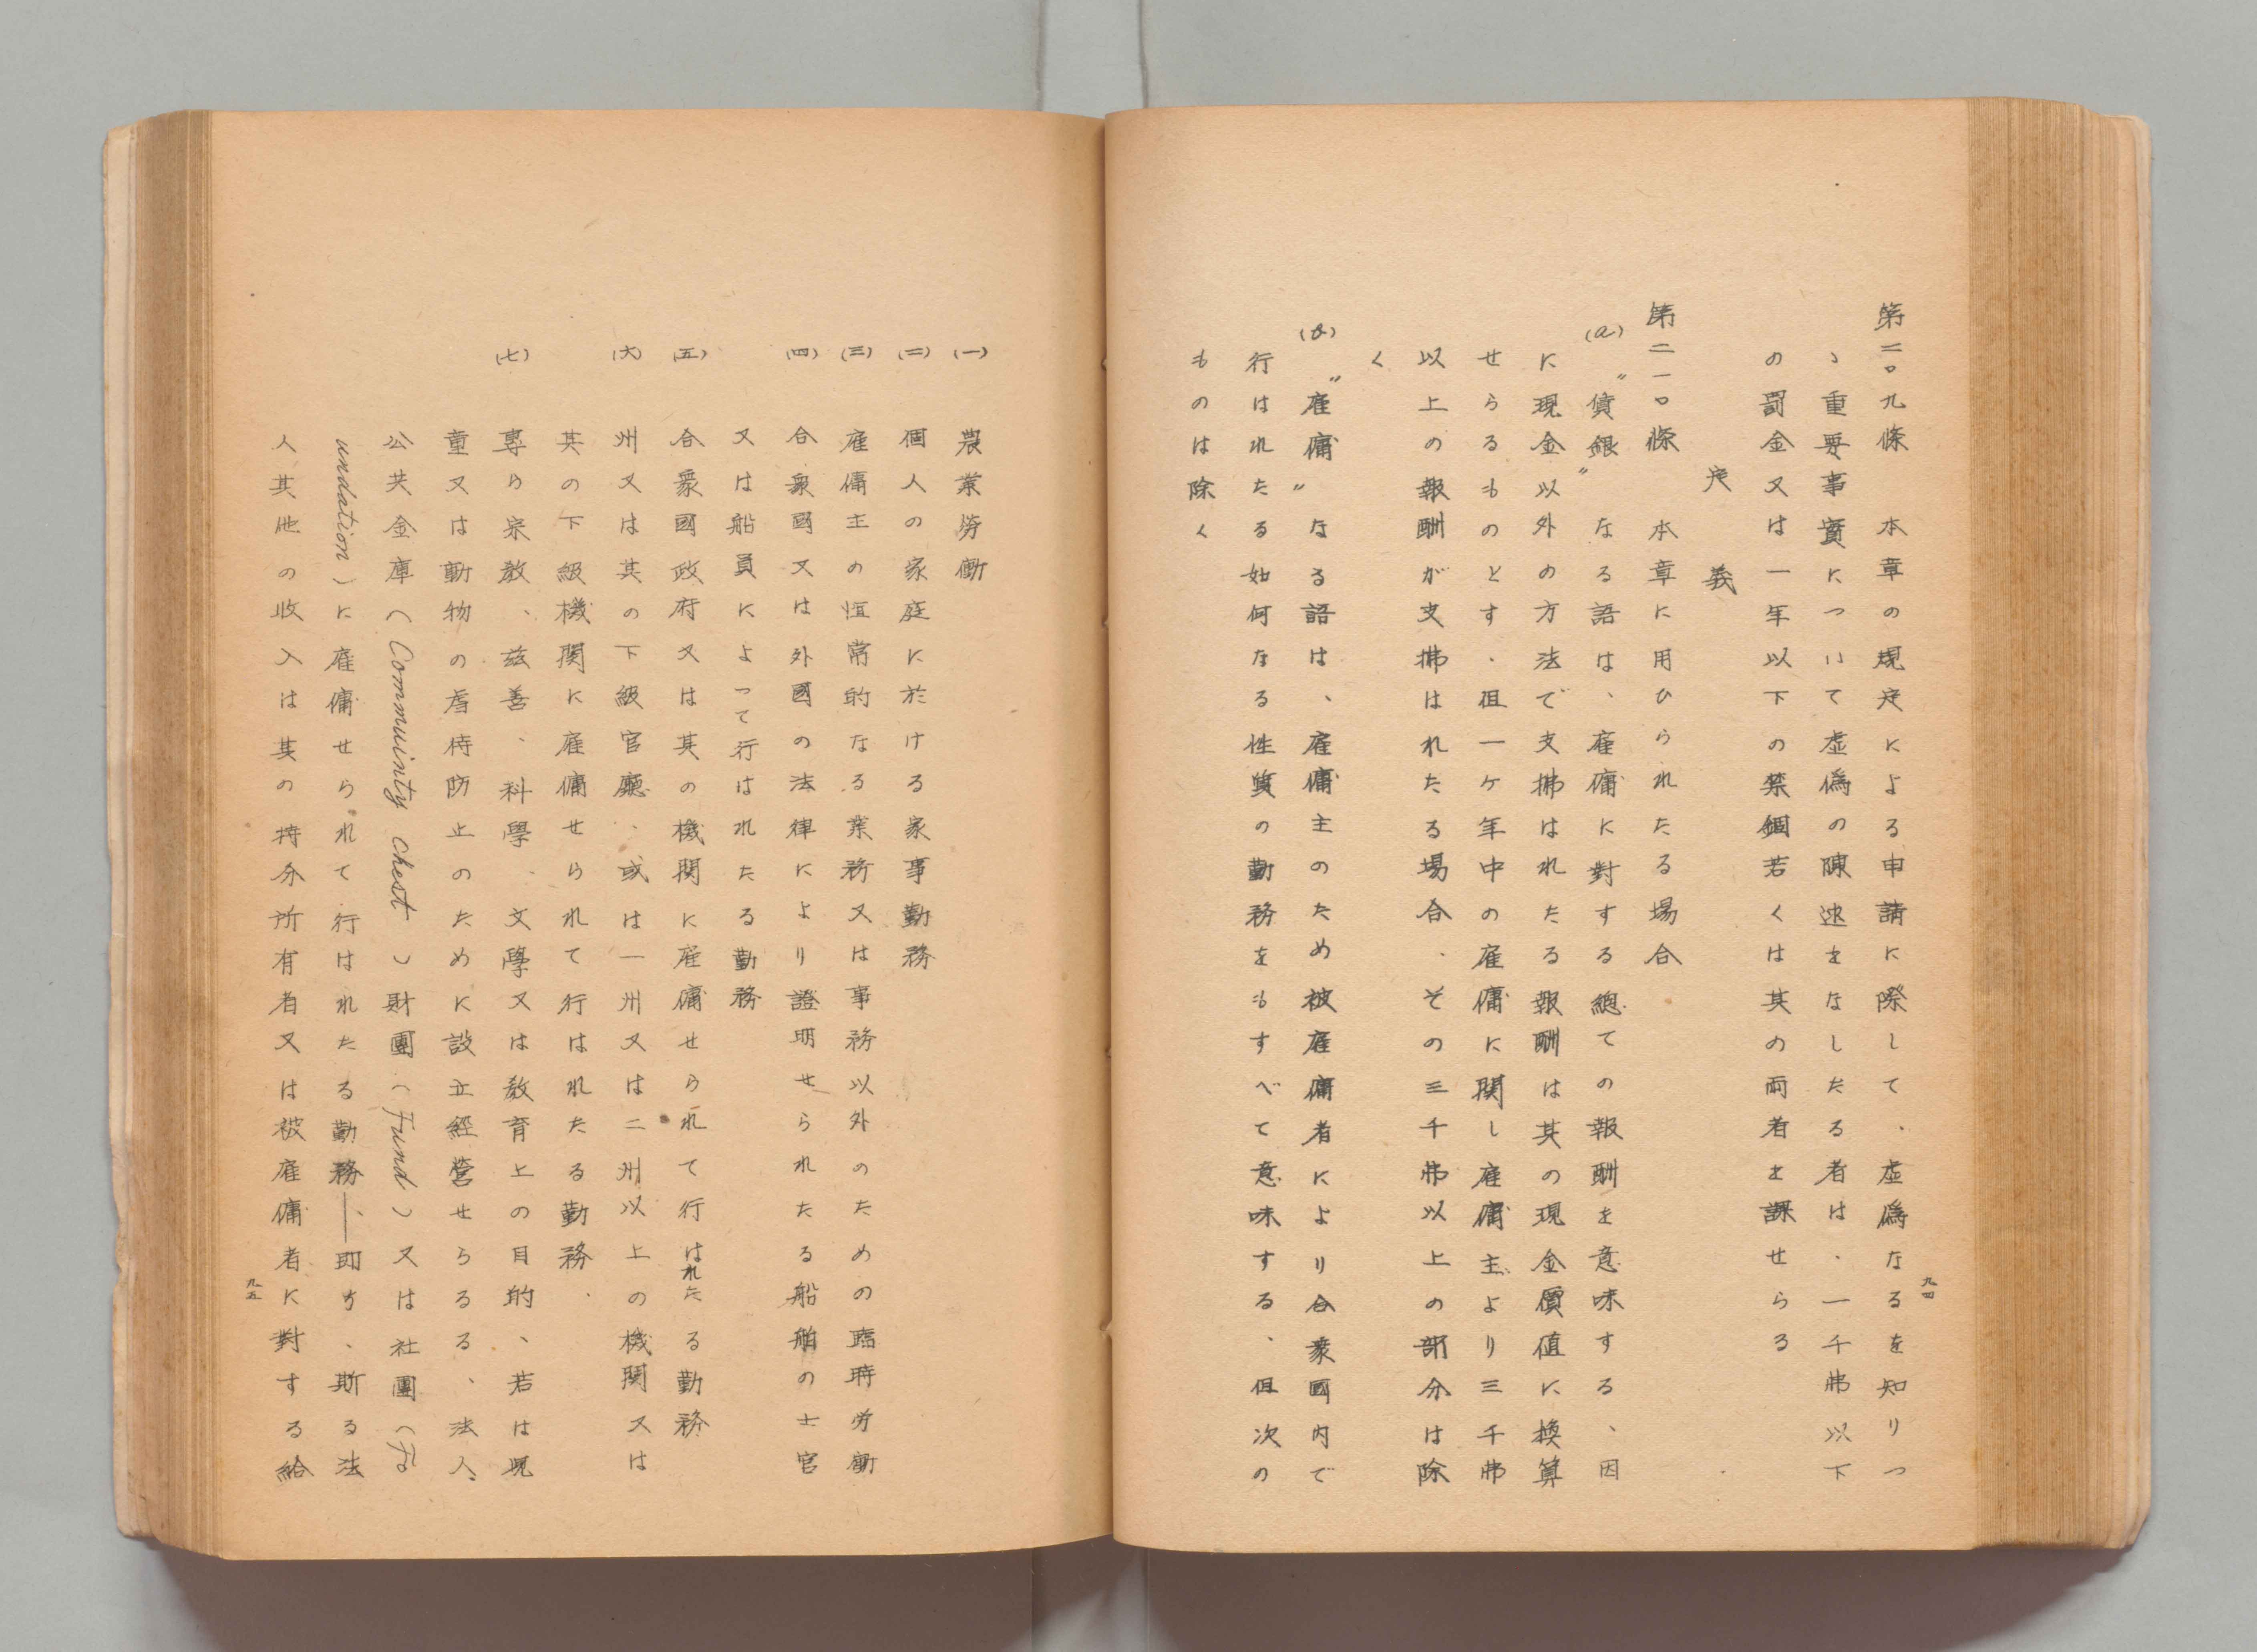 第二〇九條　本章の規定による申請に際して、虚偽なるを知りつ
ゝ重要事實について虚偽の陳述をなしたる者は、一千弗以下
の罰金又は一年以下の禁錮若くは其の両者を課せらる
定義
第二一〇條　本章に用ひられたる場合、
(a)〝賃銀〟なる語は、雇傭に對する總ての報酬を意味する、因
に現金以外の方法で支拂はれたる報酬は其の現金價値に換算
せらるるものとす、但一ヶ年中の雇傭に関し雇傭主より三千弗
以上の報酬が支拂はれたる場合、その三千弗以上の部分は除
く
(b)〝雇傭〟なる語は、雇傭主のため被雇傭者により合衆國内で
行はれたる如何なる性質の勤務をもすべて意味する、但次の
ものは除く
九四
(一)　農業労働
(二)　個人の家庭に於ける家事勤務
(三)　雇傭主の恒常的なる業務又は事務以外のための臨時労働
(四)　合衆國又は外國の法律により證明せられたる船舶の士官
又は船員によって行はれたる勤務
(五)　合衆國政府又は其の機関に雇傭せられて行はれたる勤務
(六)　州又は其の下級官廳、或は一州又は二州以上の機関又は
其の下級機関に雇傭せられて行はれたる勤務、
(七)　專ら宗教、茲善、科學、文學又は教育上の目的、若は児
童又は動物の虐待防止のために設立經營せらるる、法人、
公共金庫(Commuinty chest)財團(Fund)又は社團(Fo
undation)に雇傭せられて行はれたる勤務、――即ち、斯る法
人其他の收入は其の持分所有者又は被雇傭者に對する給
九五